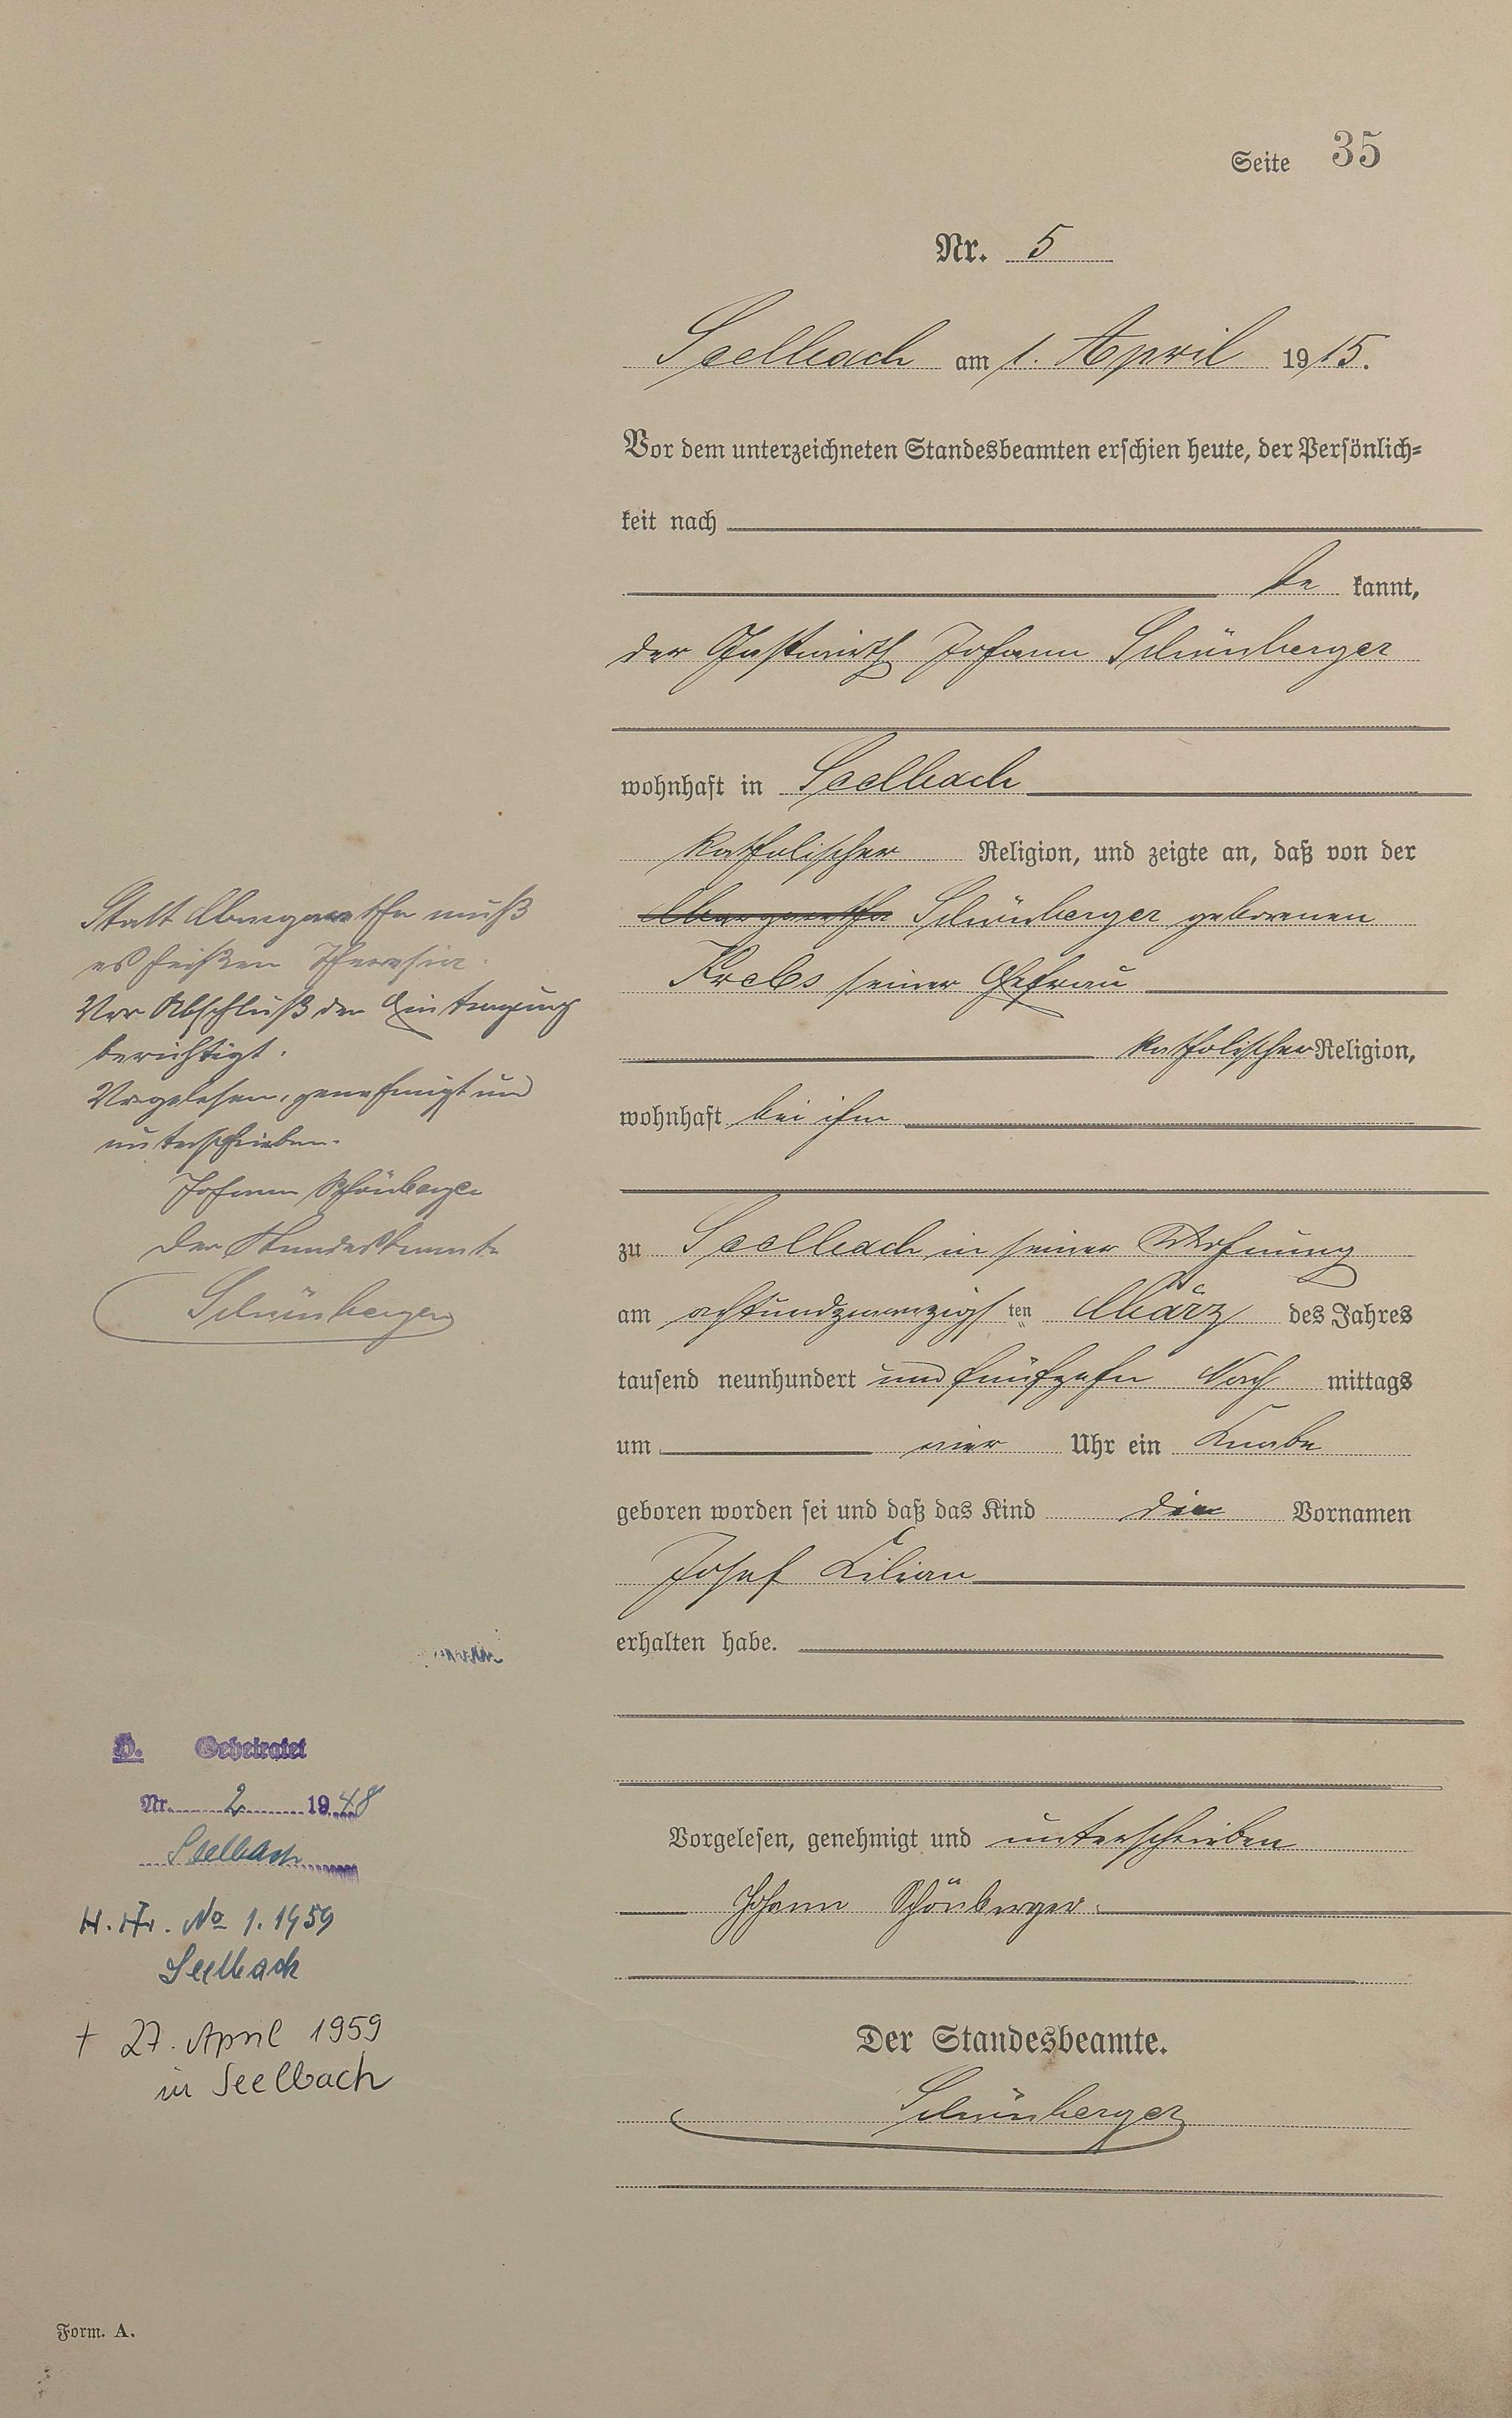 Seite 35
Nr. 5
Seelbach am 1. April 1915.
Vor dem unterzeichneten Standesbeamten erschien heute, der Persönlich-
keit nach
be kannt,
der Gastwirth Johann Schönberger
wohnhaft in Seelbach
katholischer Religion, und zeigte an, daß von der
Margaretha Schönberger geborenen
Krebs seiner Ehefrau
katholischer Religion,
wohnhaft bei ihm
zu Seelbach in seiner Wohnung
am achtundzwanzigsten März des Jahres
tausend neunhundert und fünfzehn Nach mittags
um vier Uhr ein Knabe
geboren worden sei und daß das Kind die Vornamen
Josef Kilian
erhalten habe.
Vorgelesen, genehmigt und unterschrieben
Johann Schönberger.
Der Standesbeamte.
Schönberger
Statt Margaretha muß
es heißen Theresia.
Vor Abschluß der Eintragung
berichtigt.
Vorgelesen, genehmigt und
unterschrieben.
Johann Schönberger
Der Standesbeamte
Schönberger
H. Geheiratet
Nr. 2 1948
Seelbach
No 1. 1959
Seelbach
† 27. April 1959
in Seelbach
Form. A.